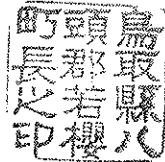 鳥取縣八
頭郡若櫻
町長之印